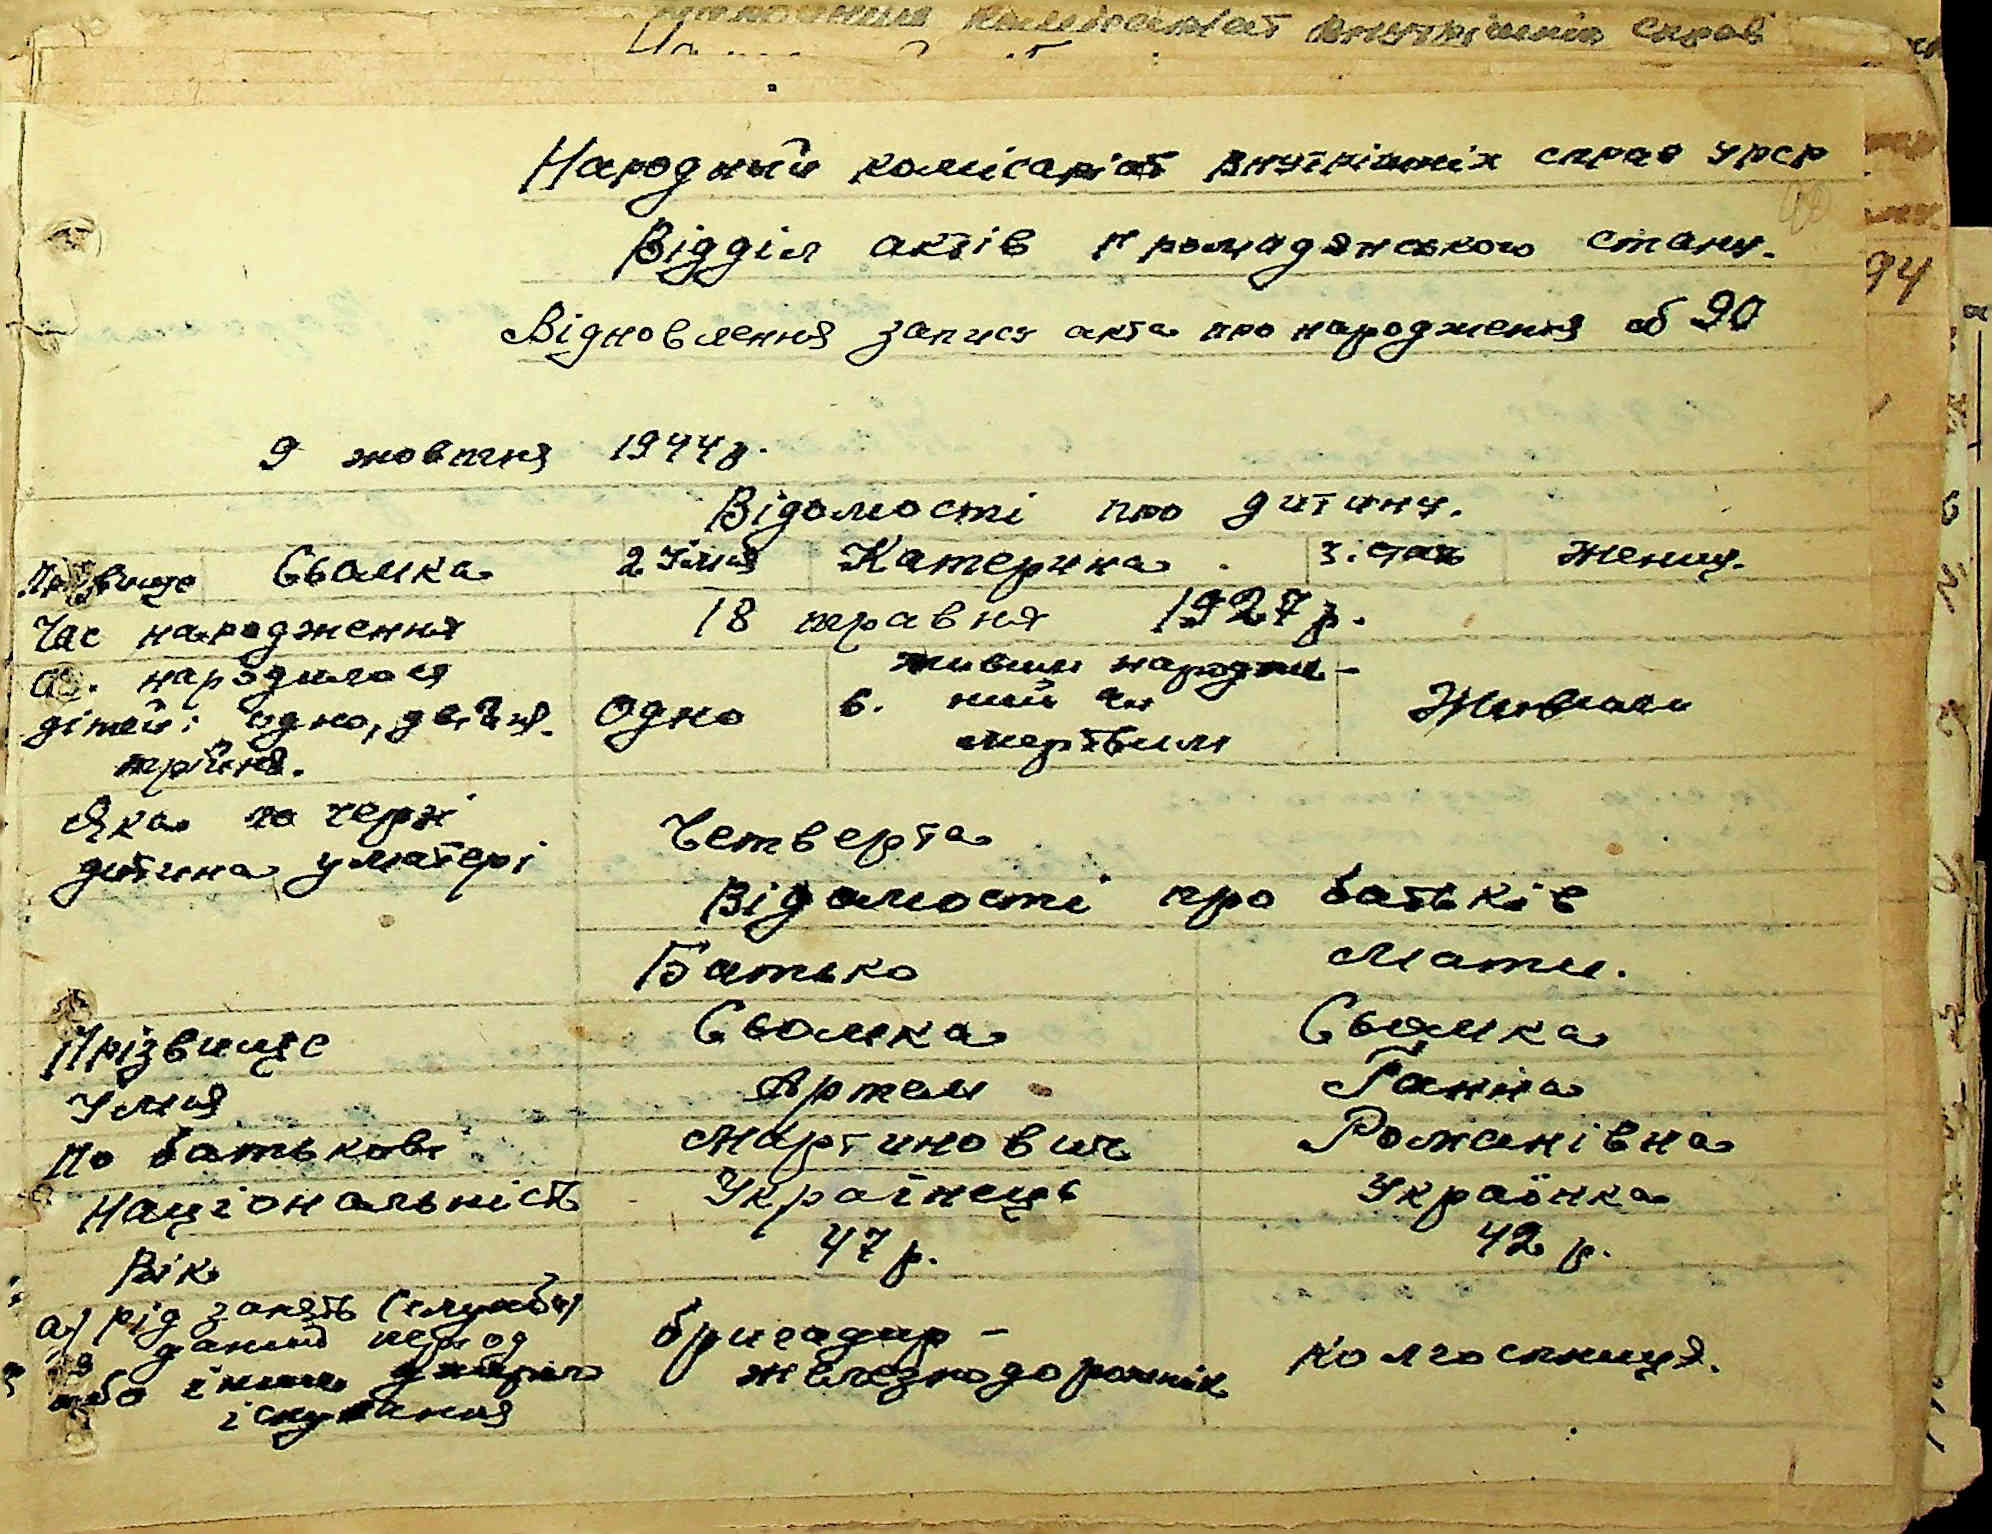 комісаріат внутрішніх справ
Народний комісаріат внутрішніх справ УРСР
Відділ актів громадянського стану.
94
Відновлення запису акта про народження № 90
9 жовтня 1944 р.
Відомості про дитину.
Прізвище Сьомка 2 Імия Катерина . 3. стать женщ.
Час народження 18 травня 1927 р.
народилося
дітей: одно, двійня. трійня. Одно 6. живим народже- ний чи мертвим Живим
Яка по черзі
дитина у матері Четверта
Відомості про батьків
Батько Мати.
Прізвище Сьомка Сьомка
Імия Артем Ганна
По батькові Мартинович Романівна
Національність Українець Українка
Вік 47 р. 42 р.
а) рід занять (служба)
даний період бригадир -
або інше джерело железнодорожнік колгоспниця.
існування